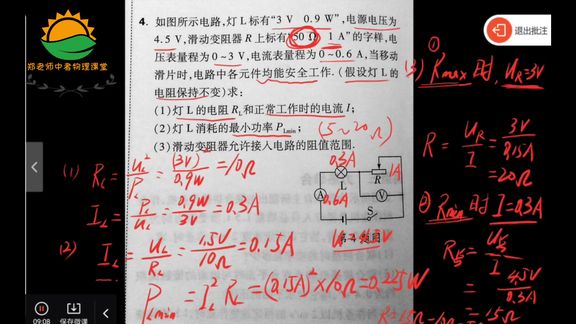 郑老师中考物理课堂
退出批注
4. 如图所示电路,灯 L 标有“3 V 0.9 W”,电源电压为
4.5 V,滑动变阻器 R 上标有“50 Ω 1 A”的字样,电
压表量程为 0~3 V,电流表量程为 0~0.6 A,当移动
滑片时,电路中各元件均能安全工作.(假设灯 L 的
电阻保持不变)求:
(1)灯 L 的电阻 R_L和正常工作时的电流 I;
(2)灯 L 消耗的最小功率 P_Lmin;
(5~20Ω)
(3)滑动变阻器允许接入电路的阻值范围.
0.3A
1A
L
R
A
0.6A
V
S
第 4 题图
(1) R_L = U_L²/P_L = (3V)²/0.9W = 10Ω
I_L = P_L/U_L = 0.9W/3V = 0.3A
(2) I_L = U_L/R_L = 1.5V/10Ω = 0.15A
P_Lmin = I_L² R_L = (0.15A)² × 10Ω = 0.225W
①
(3) Rmax时, U_R=3V
R = U_R/I = 3V/0.15A
= 20Ω
② Rmin时 I=0.3A
R总 = U总/I
= 4.5V/0.3A
= 15Ω
09:08
保存微课